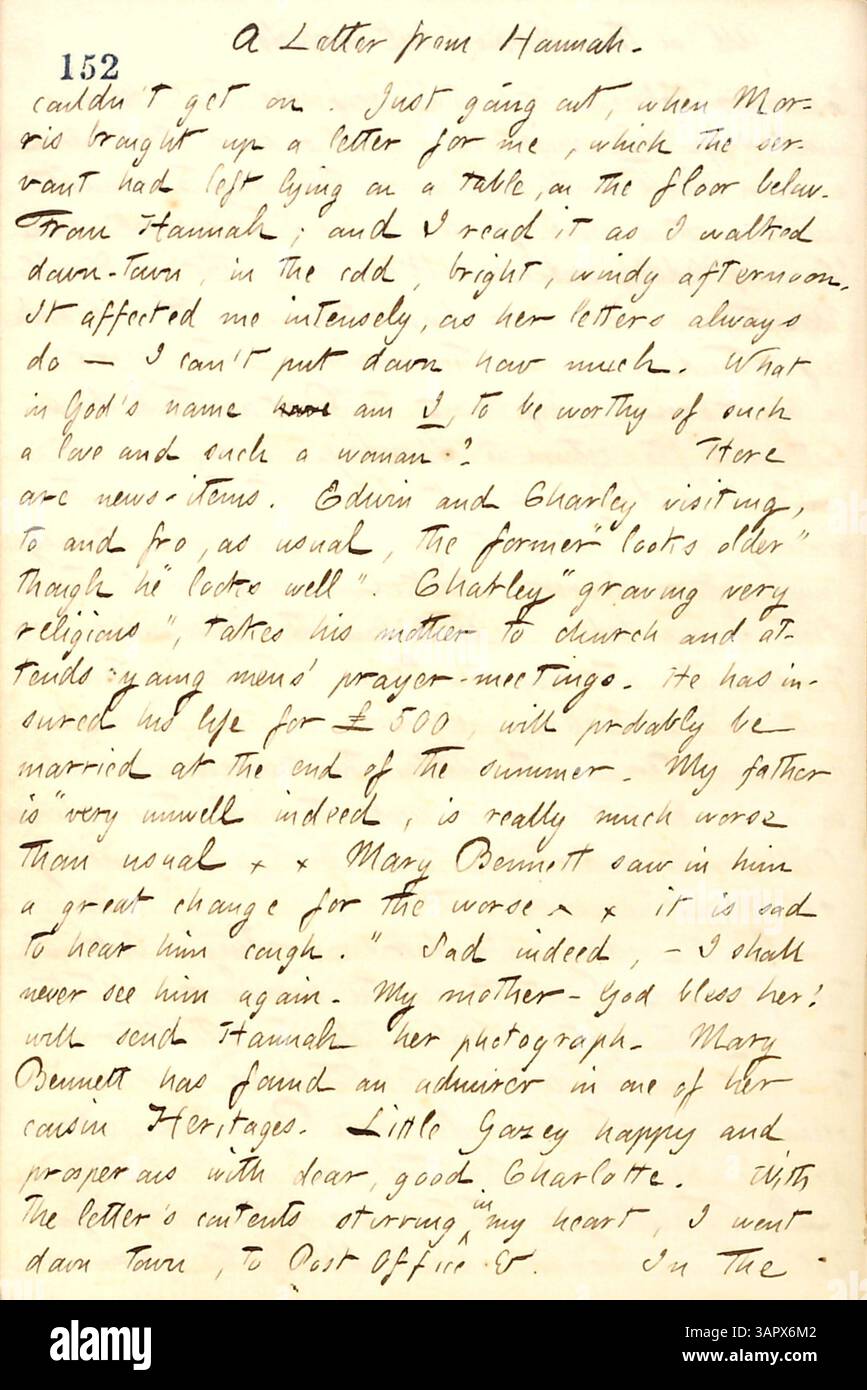 A Letter from Hannah.
152
couldn't get on. Just going out, when Mor-
ris brought up a letter for me, which the ser-
vant had left lying on a table, on the floor below.
From Hannah; and I read it as I walked
down-town, in the cold, bright, windy afternoon.
It affected me intensely, as her letters always
do — I can't put down how much. What
in God's name have am I, to be worthy of such
a love and such a woman? Here
are news-items. Edwin and Charley visiting,
to and fro, as usual, the former "looks older"
though he "looks well". Charley "growing very
religious", takes his mother to church and at-
tends young mens' prayer-meetings. He has in-
sured his life for £500, will probably be
married at the end of the summer. My father
is "very unwell indeed, is really much worse
than usual x x Mary Bennett saw in him
a great change for the worse x x it is sad
to hear him cough." Sad indeed, – I shall
never see him again. My mother – God bless her!
will send Hannah her photograph. Mary
Bennett has found an admirer in one of her
cousin Heritages. Little Gazey happy and
prosperous with dear, good Charlotte. With
the letter's contents stirring in my heart, I went
down town, to Post Office &. In the
alamy
Image ID: 3APX6M2
www.alamy.com